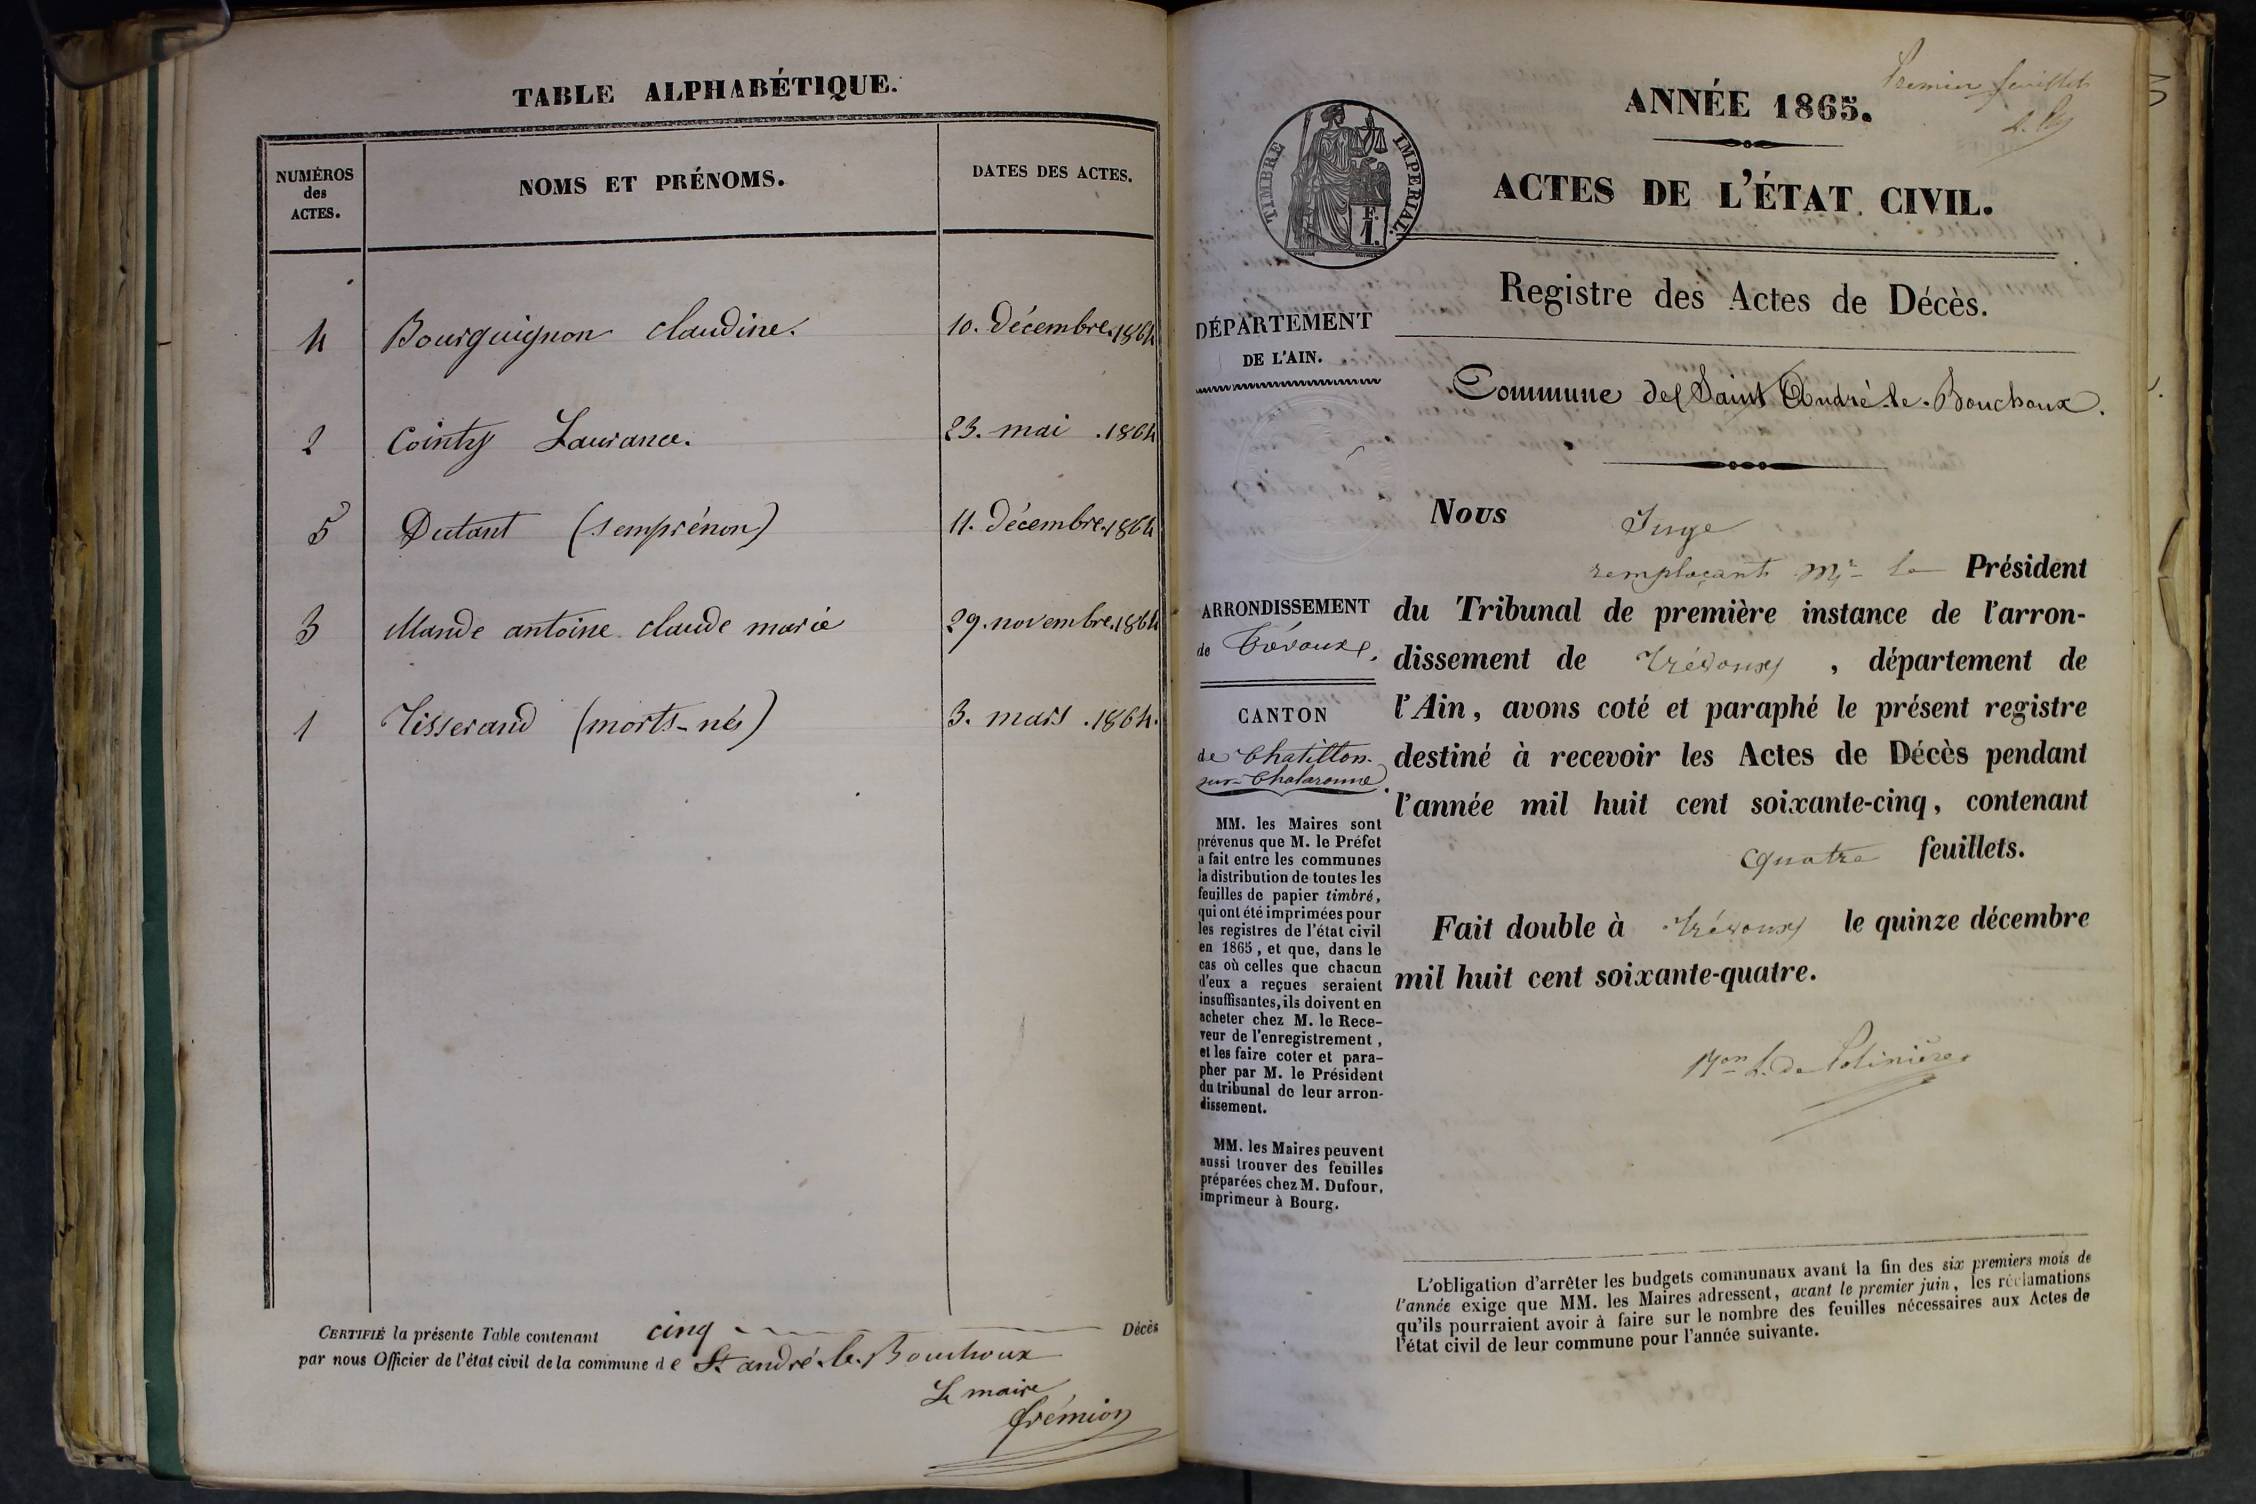 TABLE ALPHABÉTIQUE.
NUMÉROS des ACTES.
NOMS ET PRÉNOMS.
DATES DES ACTES.
4 Bourguignon claudine. 10. Décembre.1864
2 Cointy Laurance. 23. mai .1864
5 Dutant (semprénon) 11. Décembre.1864
3 Mande antoine claude marie 29.novembre.1864
1 Tisserand (morts-nés) 3. mars .1864.
CERTIFIÉ la présente Table contenant cinq Décès
par nous Officier de l'état civil de la commune de St andré-le-Bouchoux
Le maire
frémion
Premier feuillet
ANNÉE 1865.
TIMBRE IMPERIAL.
F.
1.
ACTES DE L'ÉTAT CIVIL.
Registre des Actes de Décès.
DÉPARTEMENT
DE L'AIN.
Commune de Saint André-le-Bouchoux.
ARRONDISSEMENT
de Trévoux.
CANTON
de Chatillon-
sur-Chalaronne.
MM. les Maires sont
prévenus que M. le Préfet
a fait entre les communes
la distribution de toutes les
feuilles de papier timbré,
qui ont été imprimées pour
les registres de l'état civil
en 1865, et que, dans le
cas où celles que chacun
d'eux a reçues seraient
insuffisantes, ils doivent en
acheter chez M. le Rece-
veur de l'enregistrement,
et les faire coter et para-
pher par M. le Président
du tribunal de leur arron-
dissement.
MM. les Maires peuvent
aussi trouver des feuilles
préparées chez M. Dufour,
imprimeur à Bourg.
Nous Juge
remplaçant Mr le Président
du Tribunal de première instance de l'arron-
dissement de Trévoux, département de
l'Ain, avons coté et paraphé le présent registre
destiné à recevoir les Actes de Décès pendant
l'année mil huit cent soixante-cinq, contenant
quatre feuillets.
Fait double à Trévoux le quinze décembre
mil huit cent soixante-quatre.
L'obligation d'arrêter les budgets communaux avant la fin des six premiers mois de
l'année exige que MM. les Maires adressent, avant le premier juin, les réclamations
qu'ils pourraient avoir à faire sur le nombre des feuilles nécessaires aux Actes de
l'état civil de leur commune pour l'année suivante.